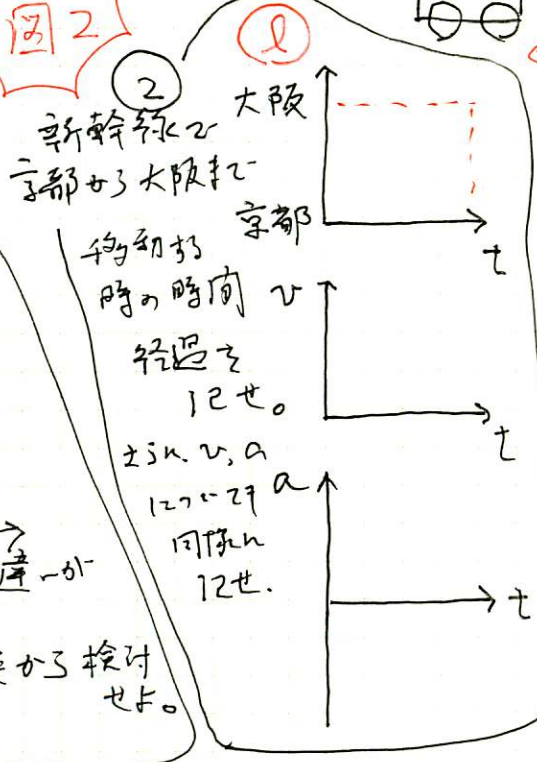 図2
②
新幹線で
京都から大阪まで
移動する
時の時間
経過を
記せ。
さらに、v, a
についても
同様に
記せ.
①
大阪
京都
t
v
t
a
t
が
から検討
せよ。